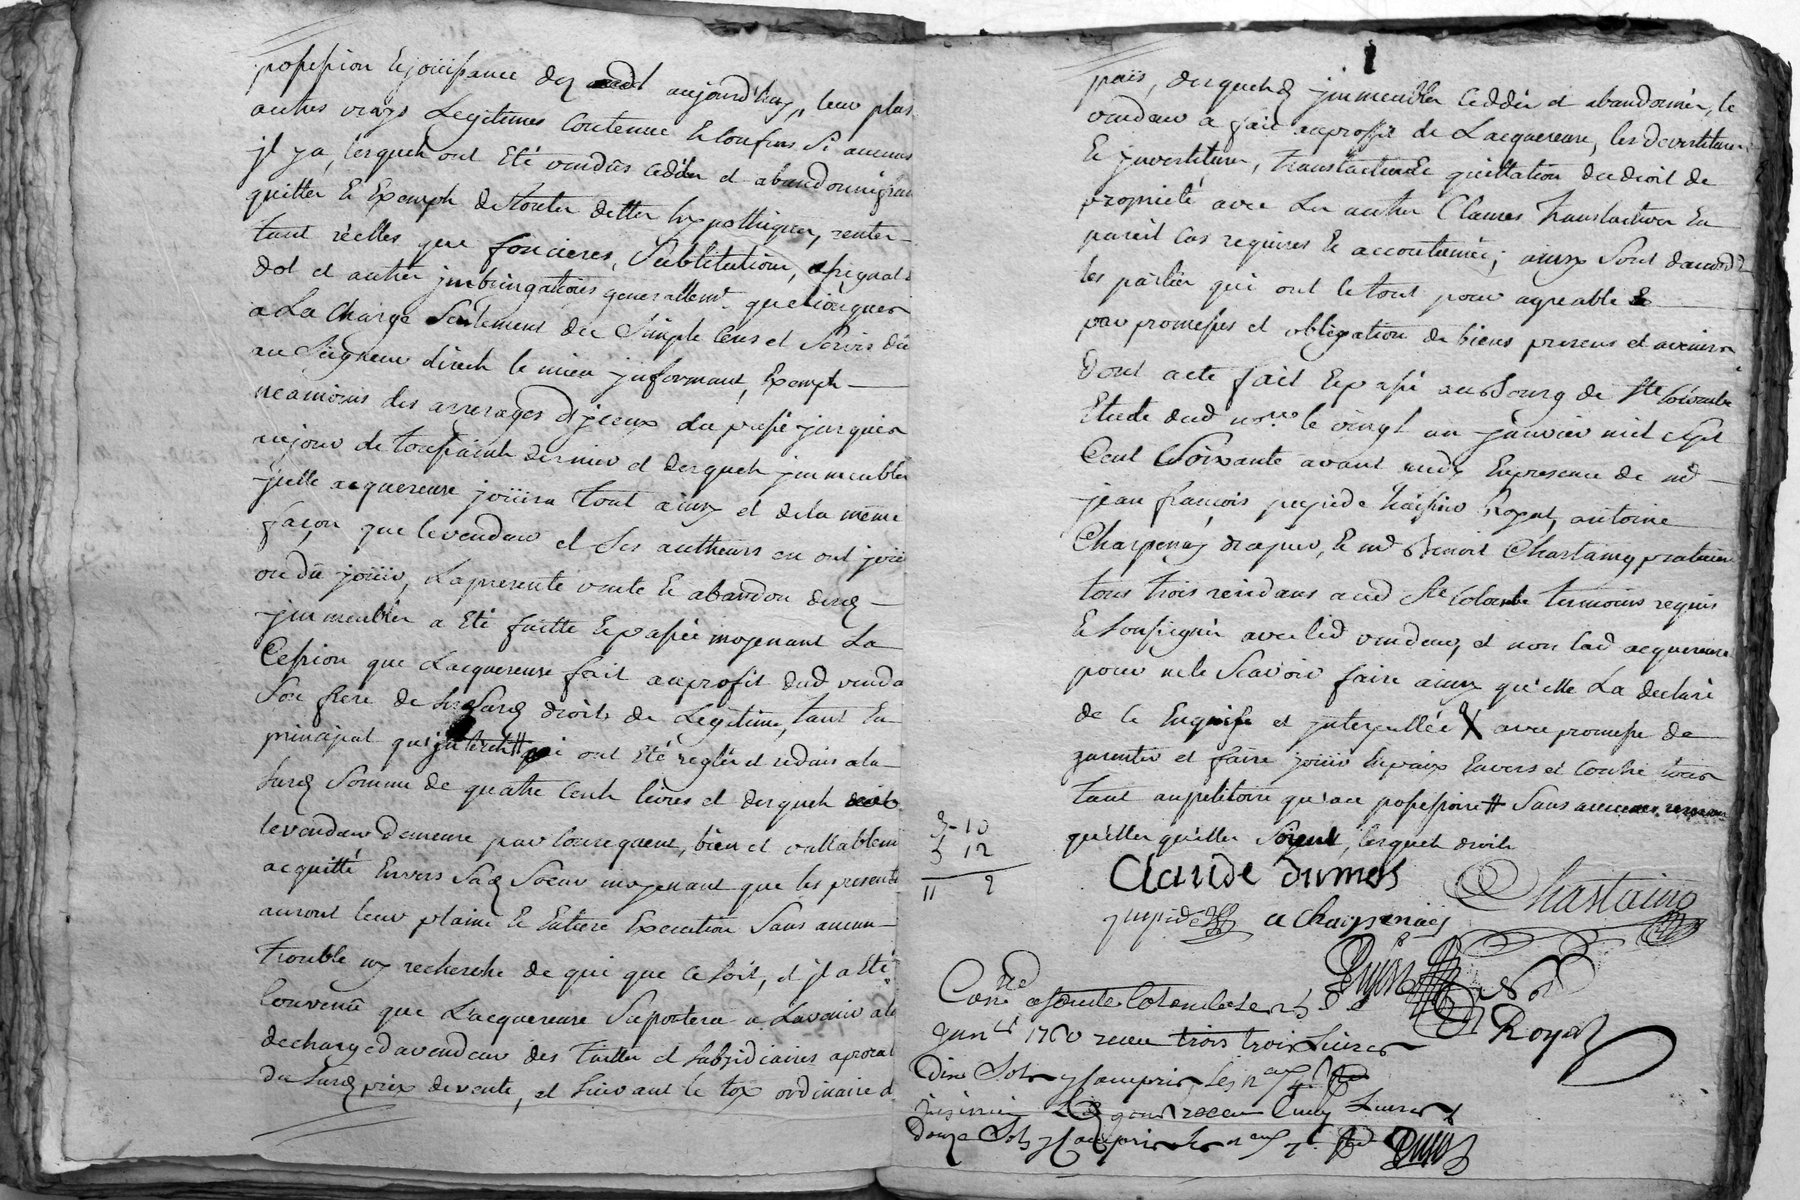 possession & joüissance dez aujourd'huy, leur plus
autres vrays & legitimes contenue & confins si aucuns
jl ya, lesquels ont été vendûs cédés et abandonnés francs
quittes & exempts de toutes dettes hypotheques, rentes
tant réelles que foncières, substitutions,
dot et autres jmbringations generallemt quelconques
a La charge seulement du simple cens et servis dû
au seigneur direct le mieux jnformant, exempts
neamoins des arrerages d'jceux du passé jusques a
aujour de toussaint dernier et desquels jmmeubles
jcelle acquereuse joüira tout ainsy et dela même
façon que levendeur et ses autheurs en ont joüi
ou dû joüir, Laprésente vente & abandon desd
jmmeubles a été faitte & passée moyenant La
Cession que Lacquereuse fait auprofit dud vendr
son frere de susd droits de Legitime, tant en
principal qu'jnterets qui ont été réglés et reduis ala
susd somme de quatre cents livres et desquels droits
levendeur demeure par consequent, bien et vallablemt
acquitté Envers sad soeur moyenant que les presentes
auront leur plaine & Entiere Execution sans aucun
trouble ny recherche de qui que ce soit, et jl a été
convenu que Lacquereuse suportera a Lavenir ala
decharge davendeur des tailles et subsidiaires aprorat
du susd prix devente, et suivant le tox ordinaire d
païs, desquels jmmeubles cedés et abandonnés, le
vendeur a fait auproffit de Lacquereuse, les devestitures
& jnvestitures, translation & quittation du droit de
propriété avec les autres Clauses translatives En
pareil cas requises & accoutumées; ainsy sont d'accord
les parties qui ont le tout pour agreable &
par promesses et obligation de biens presens et avenirs
Dont acte fait & passé au Bourg de Ste Colombe
Etude dud nore le vingt un janvier mil sept
Cent soixante avant midy En presence de md
jean françois jeupide huissier Royal, antoine
Charpenay drapier, & md Benoit Chastaing praticien
tous trois residans aud Ste Colombe temoins requis
& soussignés avec led vendeur, et non lad acquereuse
pour ne le scavoir faire ainsy qu'elle La declaré
de ce Enquise et jnterpellée X avec promesse de
garentir et faire joüir & paix Envers et contre tous
tant aupetitoire qu'au possessoire # sans aucunes reserves
qu'elles qu'elles soyent, lesquels droits
3-10
5 12
11 2
Claude dumas
Chastaing
jeupide a Charpenay
nore
Royal
Conlle a sainte Colombe le 23
janer 1760 receu trois Livres
Dix Sols y compris les
receu Cinq Livres
Douze Sols y compris les